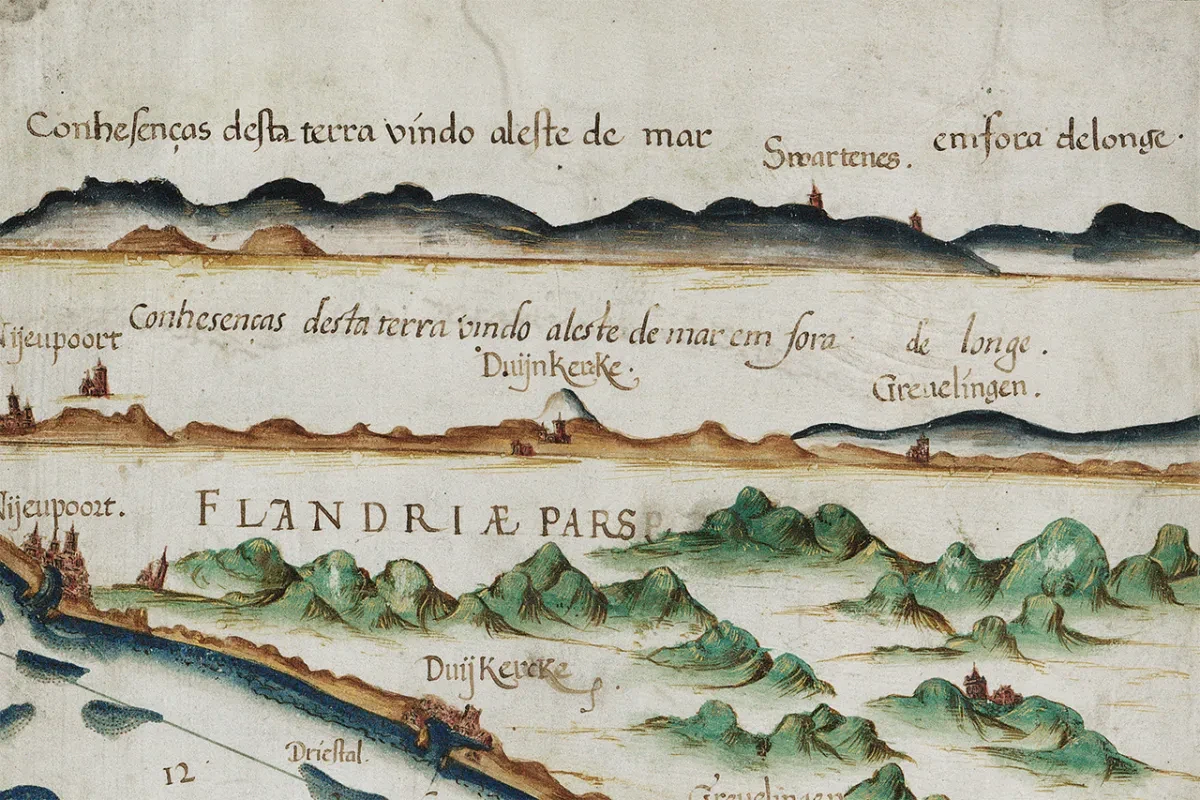 Conheſenças deſta terra víndo aleſte de mar emfora delonge.
Swartenes.
Conhesenças desta terra vindo aleste de mar em fora de longe.
Nijeupoort
Duijnkercke.
Greuelíngen.
Nijeupoort.
FLANDRIÆ PARS
Duijkercke
Drieſtal.
12
Greuelingen